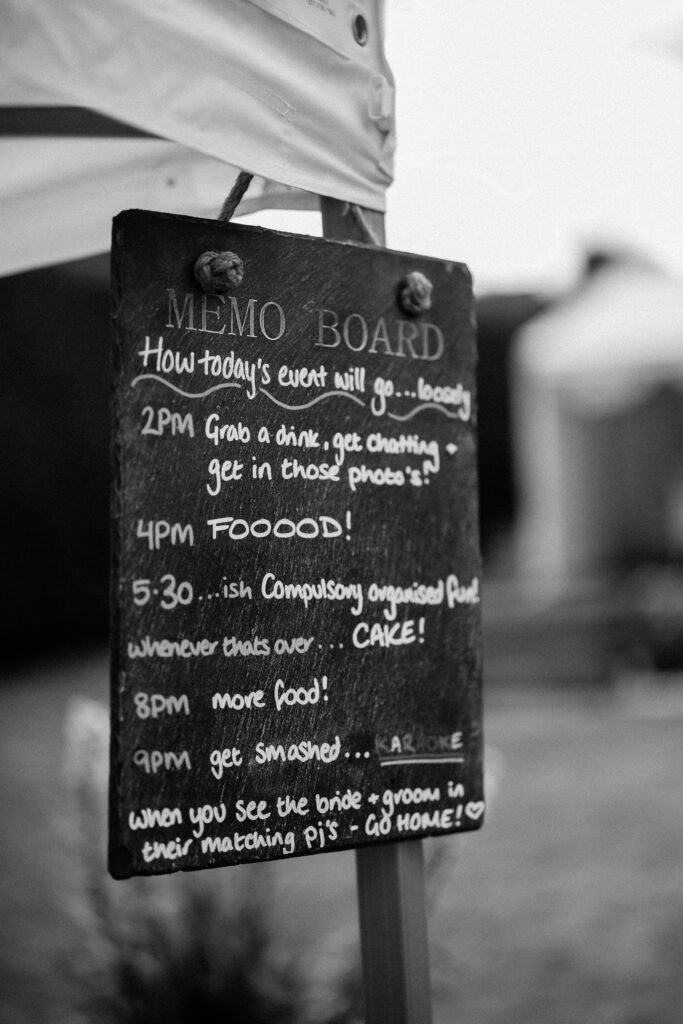 MEMO BOARD
How today's event will go...loosely
2PM Grab a drink, get chatting +
get in those photo's!
4PM FOOOOD!
5:30...ish Compulsory organised fun!
whenever thats over... CAKE!
8pm more food!
9pm get smashed... KARAOKE
when you see the bride + groom in
their matching Pj's - GO HOME! ♡